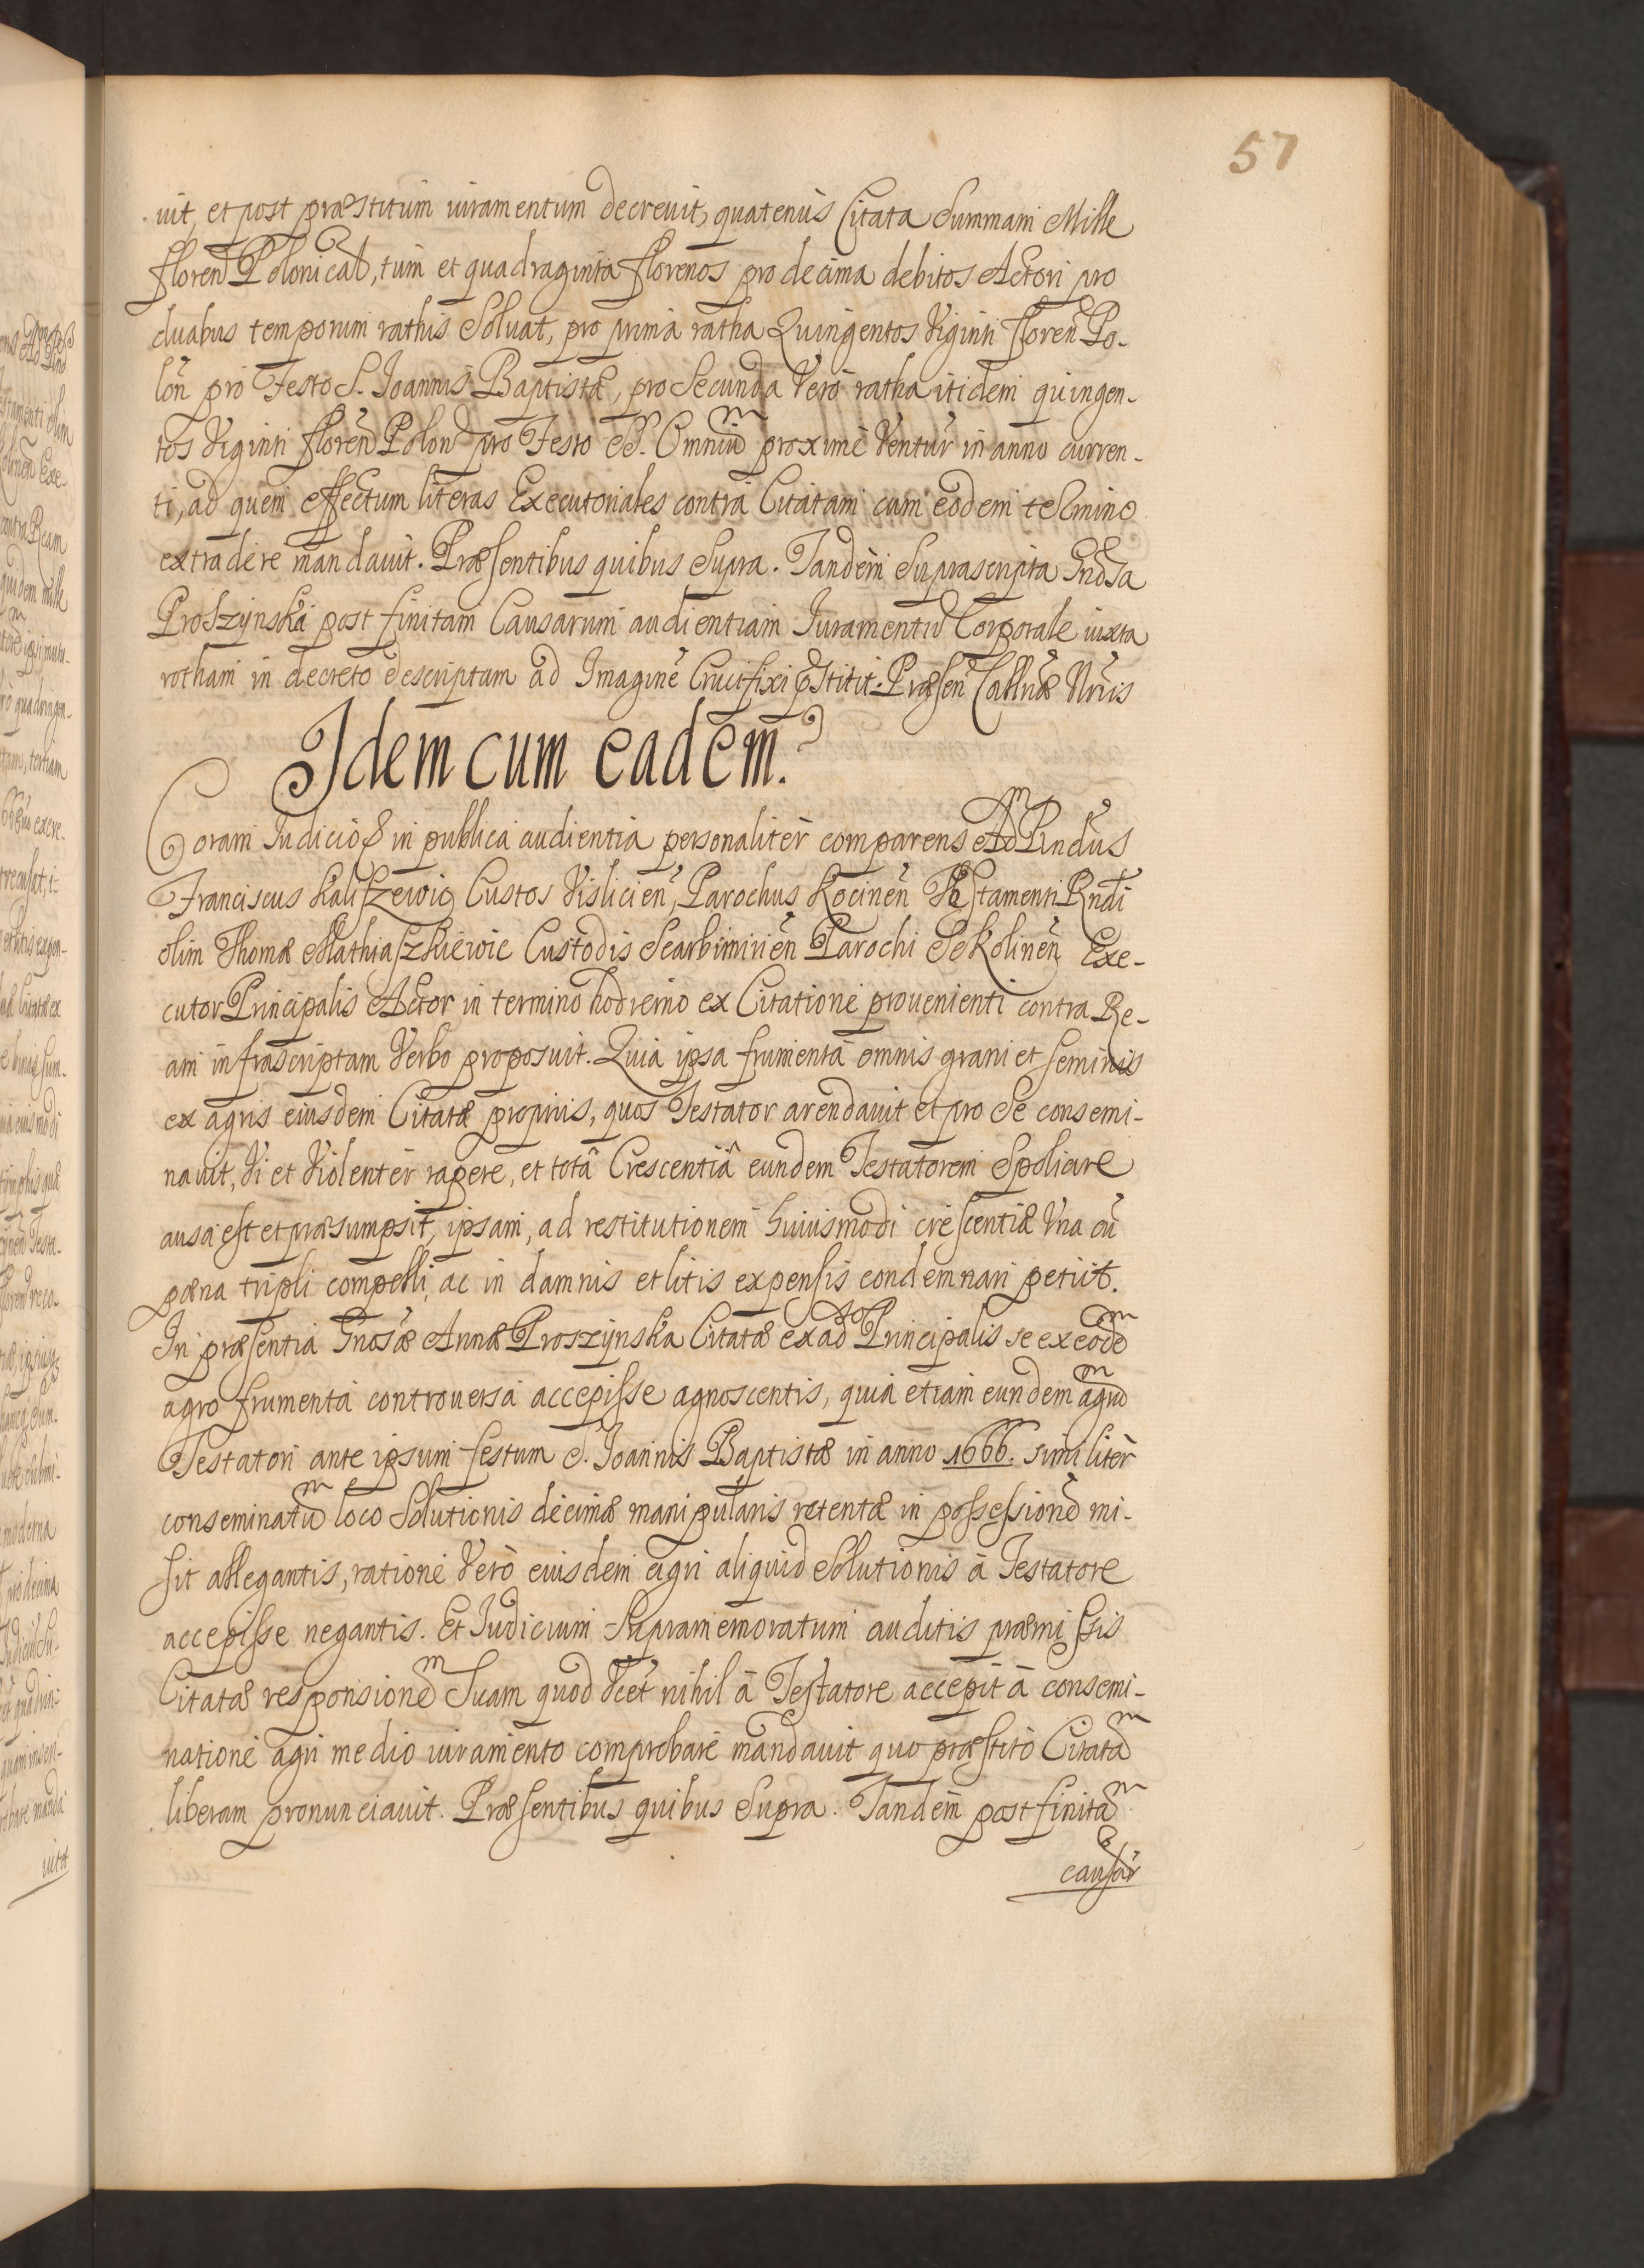 57
uit, et post præstitum iuramentum decreuit, quatenùs Citata Summam Mille
floren Polonical, tùm et quadraginta florenos pro decima debitos Actori pro
duabus temporum rathis Soluat, pro prima ratha Quingentos Viginti floren Po-
lon pro Festo S. Ioannis Baptistæ, pro Secunda Verò ratha itidem quingen-
tos Viginti floren Polon pro Festo SS. Omniũ proximè Ventur in anno curren-
ti, ad quem effectum literas Executoriales contra Citatam cum eodem termino
extradere mandauit. Præsentibus quibus Supra. Tandèm Suprascripta
Proszynska post finitam Causarum audientiam Iuramentũ Corporale iuxta
rotham in decreto descriptam ad Imaginẽ Crucifixi præstitit. Præsen
Idem cum eadem.
Coram Iudicio & in publica audientia personalitèr comparens Ad Rndus
Franciscus Kaliszewic Custos Vislicien, Parochus Kocinen Testamenti Rndi
olim Thomæ Mathiaszkiewic Custodis Scarbimirien Parochi Sokolinen Exe-
cutor Principalis Actor in termino hodierno ex Citatione prouenienti contra Re-
am infrascriptam Verbo proposuit. Quia ipsa frumenta omnis grani et seminis
ex agris eiusdem Citatæ proprijs, quos Testator arendauit et pro Se consemi-
nauit, Vi et Violentèr rapere, et totâ Crescentiâ eundem Testatorem Spoliare
ausa est et præsumpsit, ipsam, ad restitutionem huiusmodi crescentiæ Vna cũ
pæna tripli compelli, ac in damnis et litis expensis condemnari petijt.
In præsentia Gnosæ Annæ Proszynska Citatæ ex ad Principalis se ex eodẽ
agro frumenta controuersa accepisse agnoscentis, quia etiam eundem agrũ
Testatori ante ipsum festum S. Ioannis Baptistæ in anno 1666. similitèr
conseminatũ loco Solutionis decimæ manipularis retentæ in possessionẽ mi-
sit allegantis, ratione Verò eiusdem agri aliquid Solutionis à Testatore
accepisse negantis. Et Iudicium Supramemoratum auditis præmissis
Citatæ responsionẽ Suam quod Vcet nihil à Testatore accepit à consemi-
natione agri medio iuramento comprobare mandauit quo præstito Citatã
liberam pronunciauit. Præsentibus quibus Supra. Tandèm post finitã
causar